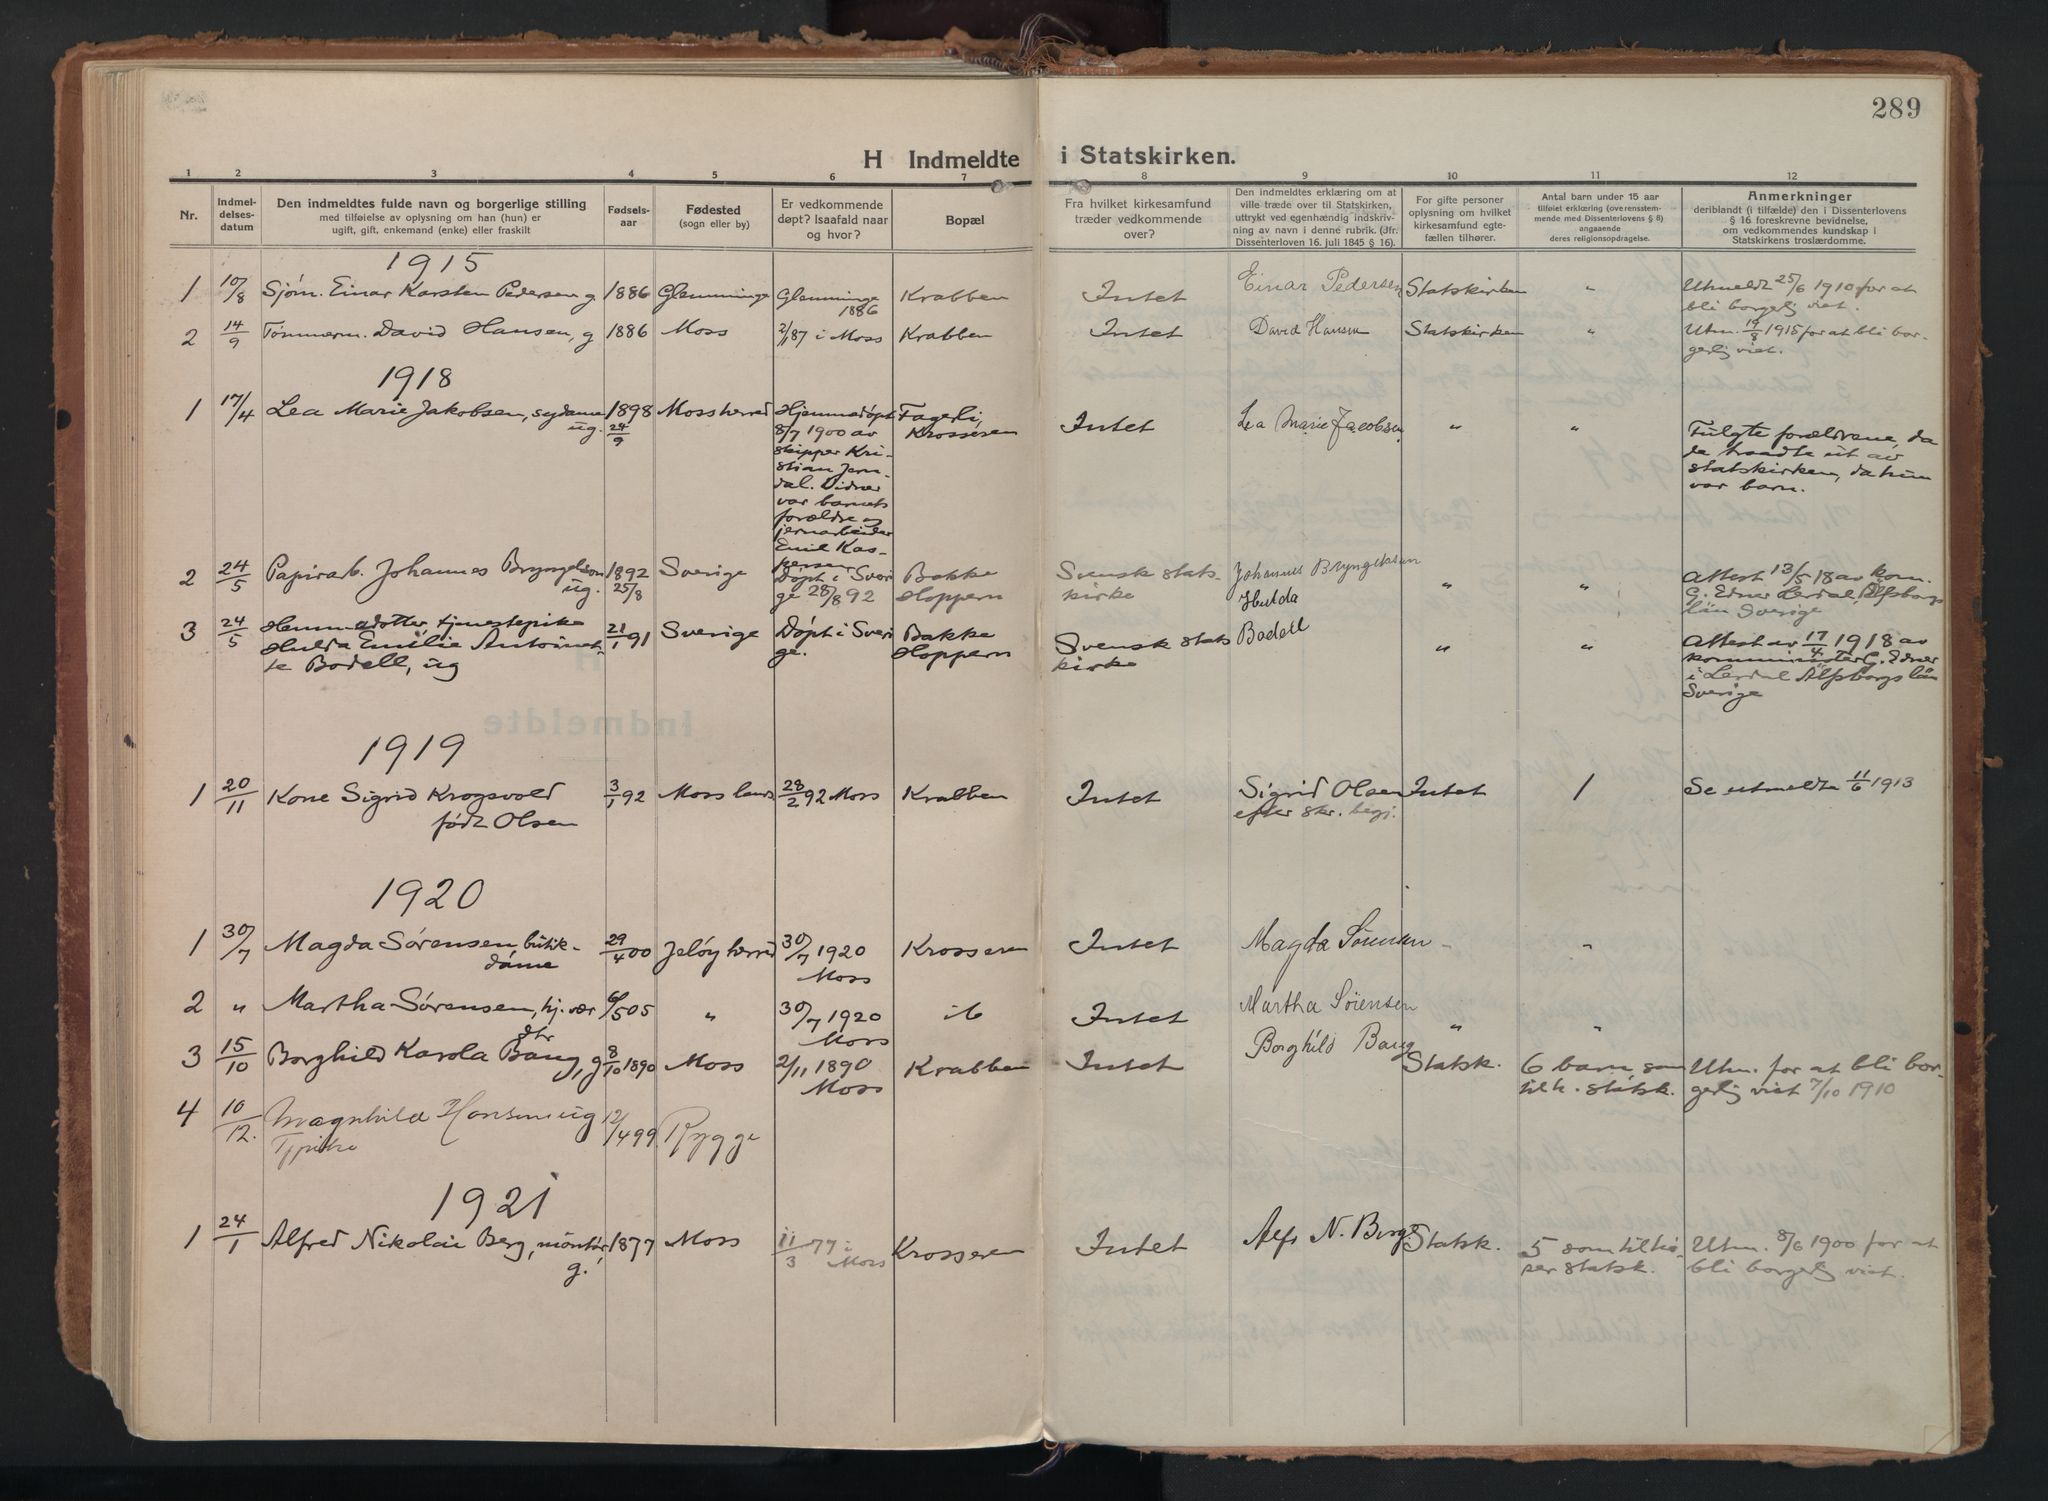 289
H Indmeldte i Statskirken.
1 2 3 4 5 6 7 8 9 10 11 12
Nr.
Indmel-
delses-
datum
Den indmeldtes fulde navn og borgerlige stilling
med tilføielse av oplysning om han (hun) er
ugift, gift, enkemand (enke) eller fraskilt
Fødsels-
aar
Fødested
(sogn eller by)
Er vedkommende
døpt? Isaafald naar
og hvor?
Bopæl
Fra hvilket kirkesamfund
træder vedkommende
over?
Den indmeldtes erklæring om at
ville træde over til Statskirken,
uttrykt ved egenhændig indskriv-
ning av navn i denne rubrik. (Jfr.
Dissenterloven 16. juli 1845 § 16).
For gifte personer
oplysning om hvilket
kirkesamfund egte-
fællen tilhører.
Antal barn under 15 aar
tilføiet erklæring (overensstem-
mende med Dissenterlovens § 8)
angaaende
deres religionsopdragelse.
Anmerkninger
deriblandt (i tilfælde) den i Dissenterlovens
§ 16 foreskrevne bevidnelse,
om vedkommendes kundskap i
Statskirkens troslærdomme.
1915
1 10/8 Sjøm. Einar Karsten Pedersen g 1886 Glemminge Glemminge
1886
Krabben Intet Einar Pedersen Statskirken " Utmeldt 25/6 1910 for at
bli borgerlig viet.
2 14/9 Tømmerm. David Hansen, g 1886 Moss 2/1 87 i Moss Krabben Intet David Hansen Statskirken " Utm. 19/8 1915 for at bli bor-
gerlig viet.
1918
1 17/4 Lea Marie Jakobsen, sydame
ug.
1898
24/9
Mossherred
Hjemmedøpt
8/7 1900 av
skipper Kri-
stian Jern-
dal. Vidner
var barnets
forældre og
jernarbeider
Emil Kas-
persen
Fagerli,
Krosseren
Intet Lea Marie Jacobsen " "
Fulgte forældrene, da
de traadte ut av
statskirken, da hun
var barn.
2 24/5 Papirarb. Johannes Bryngelson
ug.
1892
25/8
Sverige
Døpt i Sveri
ge 28/8 92
Bakke
Hoppern
Svensk stats-
kirke
Johannes Bryngelson " "
Attest 13/5 18 av kom.
G. Edner Lerdal, Elfsborgs
län Sverige
3 24/5 Hemmadotter, tjenestepike
Hulda Emilie Antoinet-
te Bodell, ug
21/1 91 Sverige
Døpt i Sveri
ge.
Bakke
Hoppern
Svensk stats
kirke
Hulda
Bodell
" "
Attest av 17/4 1918 av
kommunister G. Edner
i Lerdal Älfsborgs län
Sverige
1919
1 20/11 Kone Sigrid Krogsvold
født Olsen
3/1 92 Moss lands 28/2 92 Moss Krabben Intet Sigrid Olsen
efter skr. begj.
Intet 1 Se utmeldte 11/6 1913
1920
1 30/7 Magda Sørensen, butik-
dame
29/4 00 Jeløy herred 30/7 1920
Moss
Krosseren Intet Magda Sørensen - "
2 " Martha Sørensen, hj. vær
dtr
6/5 05 " 30/7 1920
Moss
ib Intet Martha Sörensen " "
3 15/10 Borghild Karola Bang, g 8/10 1890 Moss 2/11 1890
Moss
Krabben Intet Borghild Bang Statsk. 6 barn som
tilh. statsk.
Utm. for at bli bor-
gerlig viet 7/10 1910
4 10/12. Magnhild Hansen ug
Tjpike
12/4 99 Rygge
1921
1 24/1 Alfred Nikolai Berg, montør,
g.
1877 Moss 11/3 77 i
Moss
Krosseren Intet Alf N. Berg Statsk. 5 som tilhø-
rer statsk.
Utm. 8/6 1900 for at
bli borgerlig viet.